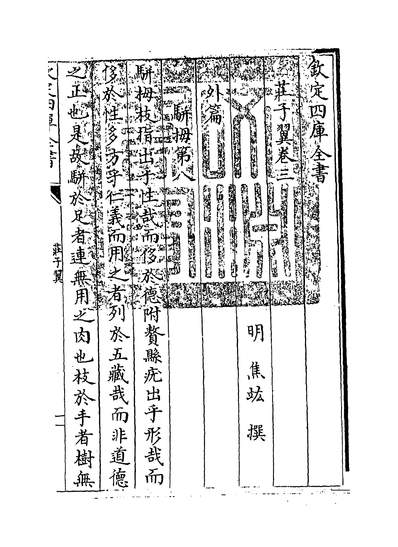 欽定四庫全書
莊子翼卷三
明 焦竑 撰
外篇
駢拇第八
駢拇枝指出乎性哉而侈於德附贅縣疣出乎形哉而
侈於性多方乎仁義而用之者列於五藏哉而非道德
之正也是故駢於足者連無用之肉也枝於手者樹無
欽定四庫全書
莊子翼
一